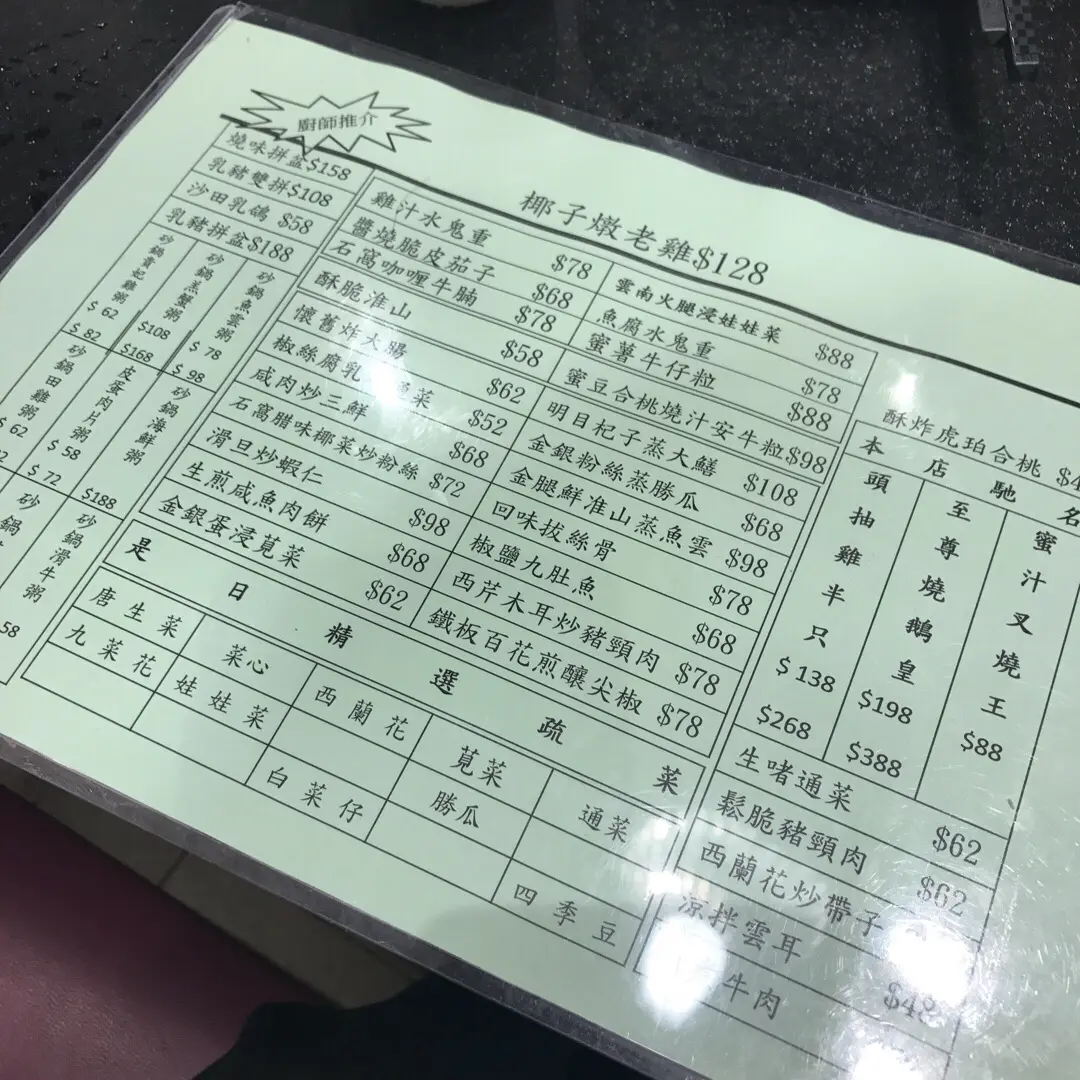 廚師推介
椰子燉老雞$128
燒味拼盆$158
乳豬雙拼$108
沙田乳鴿 $58
乳豬拼盆$188
砂鍋貴妃雞粥 $62 $82
砂鍋羔蟹粥 $108 $168
砂鍋魚雲粥 $78 $98
砂鍋田雞粥 $62
皮蛋肉片粥 $58 $72
砂鍋海鮮粥 $188
砂鍋
砂鍋滑牛粥
58
雞汁水鬼重 $78
醬燒脆皮茄子 $68
石窩咖喱牛腩 $78
酥脆淮山 $58
懷舊炸大腸 $62
椒絲腐乳 菜 $52
咸肉炒三鮮 $68
石窩腊味椰菜炒粉絲 $72
滑旦炒蝦仁 $98
生煎咸魚肉餅 $68
金銀蛋浸莧菜 $62
雲南火腿浸娃娃菜 $88
魚腐水鬼重 $78
蜜薯牛仔粒 $88
蜜豆合桃燒汁安牛粒$98
明目杞子蒸大鱔 $108
金銀粉絲蒸勝瓜 $68
金腿鮮淮山蒸魚雲 $98
回味拔絲骨 $78
椒鹽九肚魚 $68
西芹木耳炒豬頸肉 $78
鐵板百花煎釀尖椒 $78
是日精選疏菜
唐生菜 菜心 西蘭花 莧菜 通菜
九菜花 娃娃菜 白菜仔 勝瓜 四季豆
酥炸虎珀合桃 $4
本店馳名
頭抽雞半只 $138 $268
至尊燒鵝皇 $198 $388
蜜汁叉燒王 $88
生啫通菜 $62
鬆脆豬頸肉 $62
西蘭花炒帶子
涼拌雲耳 $48
牛肉